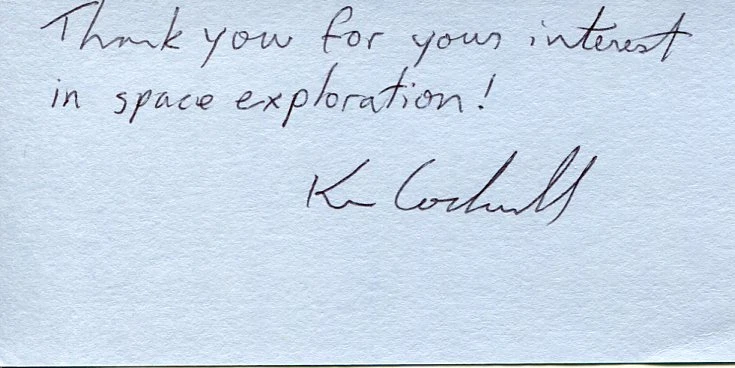 Thank you for your interest
in space exploration!
Ken Cockrell